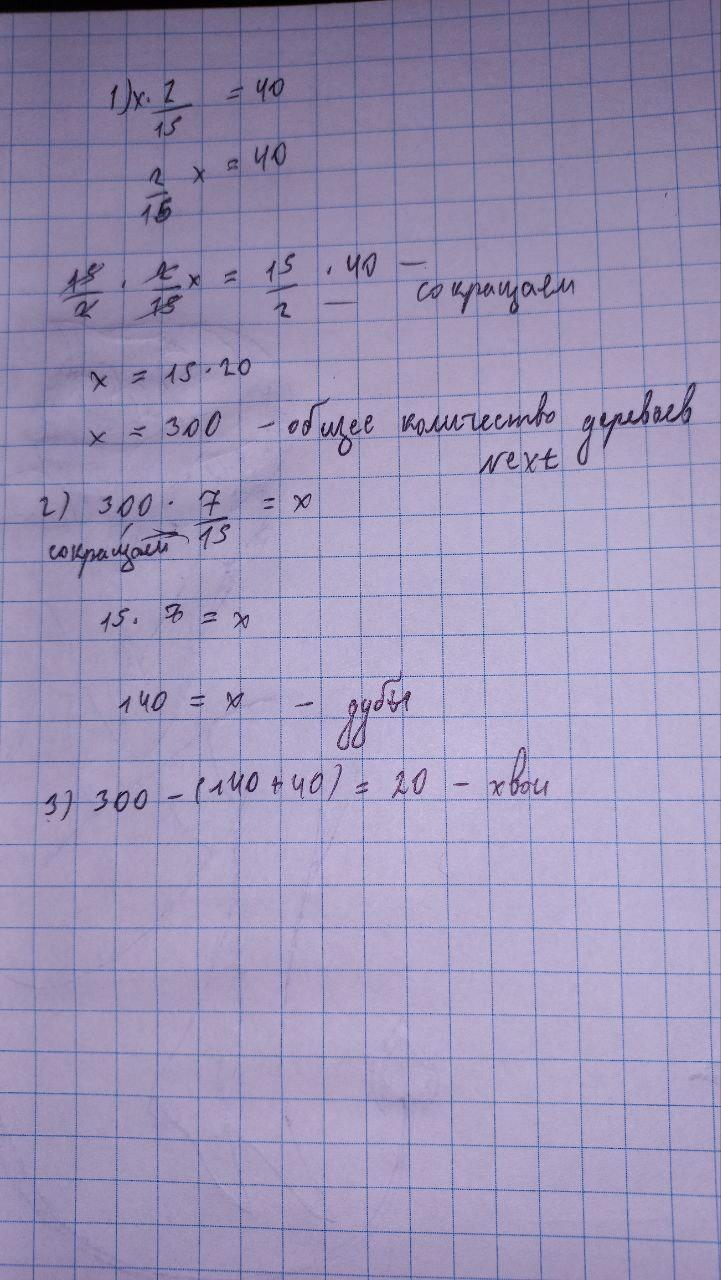 1) x · 2/15 = 40
2/15 x = 40
15/2 · 2/15 x = 15/2 · 40 — сокращаем
x = 15 · 20
x = 300 - общее количество деревьев
Next
2) 300 · 7/15 = x
сокращаем
15 · 7 = x
140 = x - дубы
3) 300 - (140 + 40) = 20 - хвои